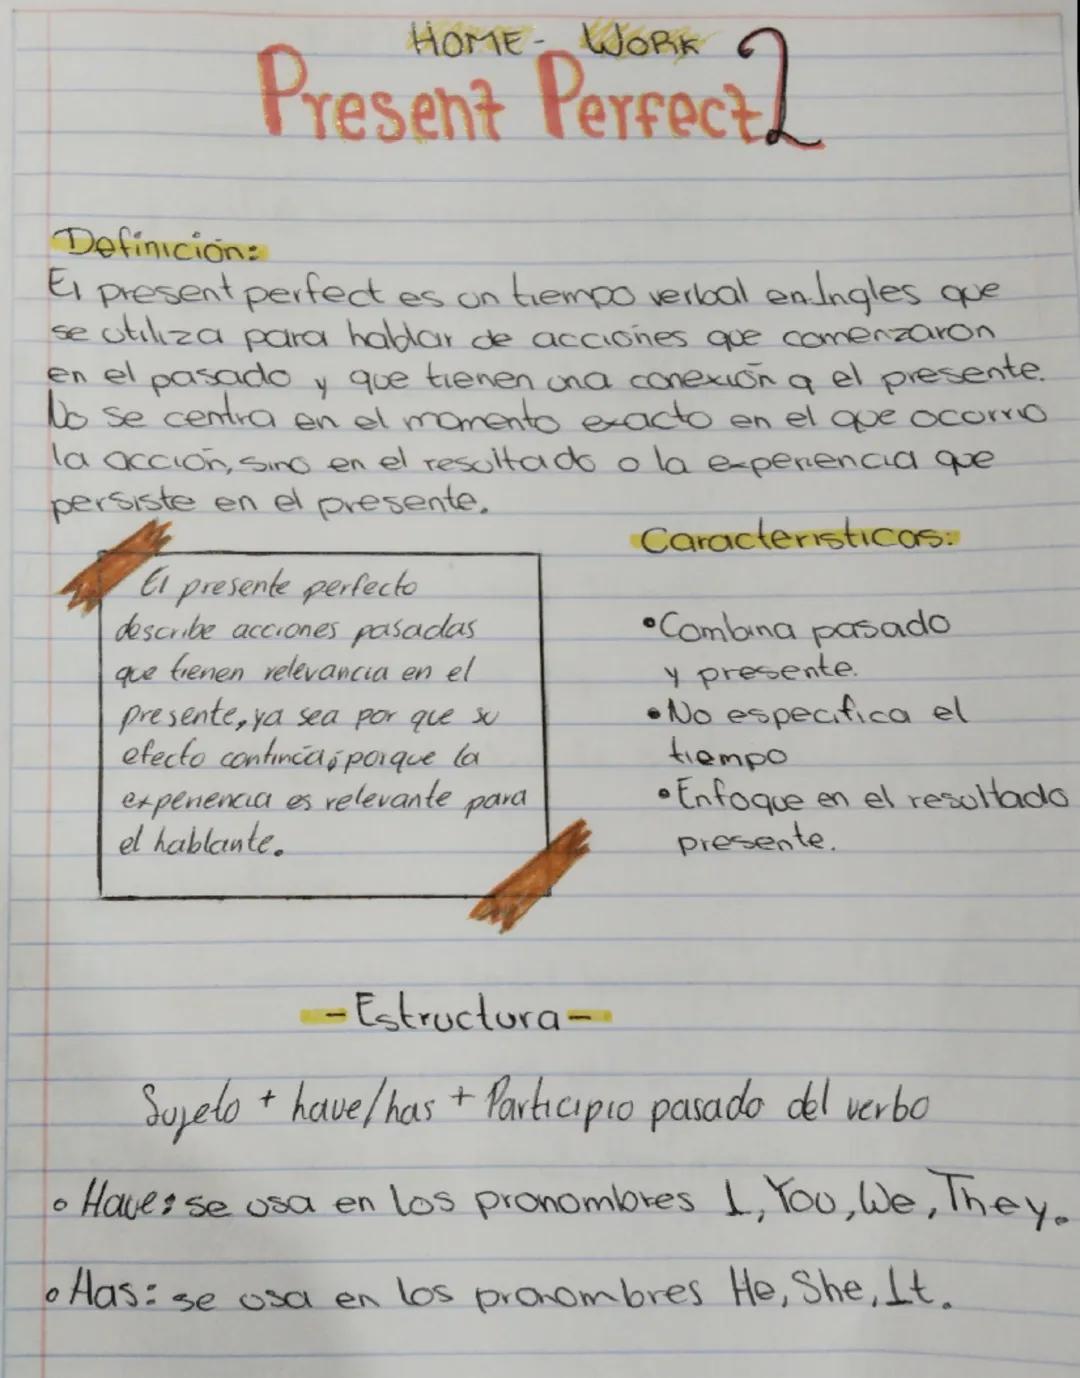 HOME- WORK
Present Perfect 2
Definición:
El present perfect es un tiempo verbal en Ingles que
se utiliza para hablar de acciones que comenzaron
en el pasado y que tienen una conexión a el presente.
No se centra en el momento exacto en el que ocurrio
la acción, sino en el resultado o la experiencia que
persiste en el presente.
El presente perfecto
describe acciones pasadas
que tienen relevancia en el
presente, ya sea por que su
efecto continúa, porque la
experiencia es relevante para
el hablante.
Caracteristicas:
•Combina pasado
y presente.
•No especifica el
tiempo
•Enfoque en el resultado
presente.
-Estructura-
Sujeto + have/has + Participio pasado del verbo
• Have: se usa en los pronombres I, You, We, They.
• Has: se usa en los pronombres He, She, It.